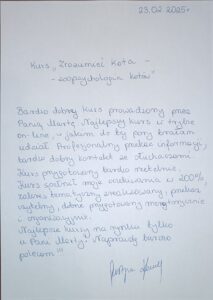 23.02.2025r.
Kurs „Zrozumieć Kota –
– zoopsychologia kotów"
Bardzo dobry kurs prowadzony przez
Panią Martę. Najlepszy kurs w trybie
on-line, w jakim do tej pory brałam
udział. Profesjonalny przekaz informacji,
bardzo dobry kontakt ze słuchaczami.
Kurs przygotowany bardzo rzetelnie.
Kurs spełnił moje oczekiwania w 200%,
zakres tematyczny zrealizowany, przekaz
czytelny, dobre przygotowany merytorycznie
i organizacyjnie.
Najlepsze kursy na rynku tylko
u Pani Marty! Naprawdę bardzo
polecam!!!